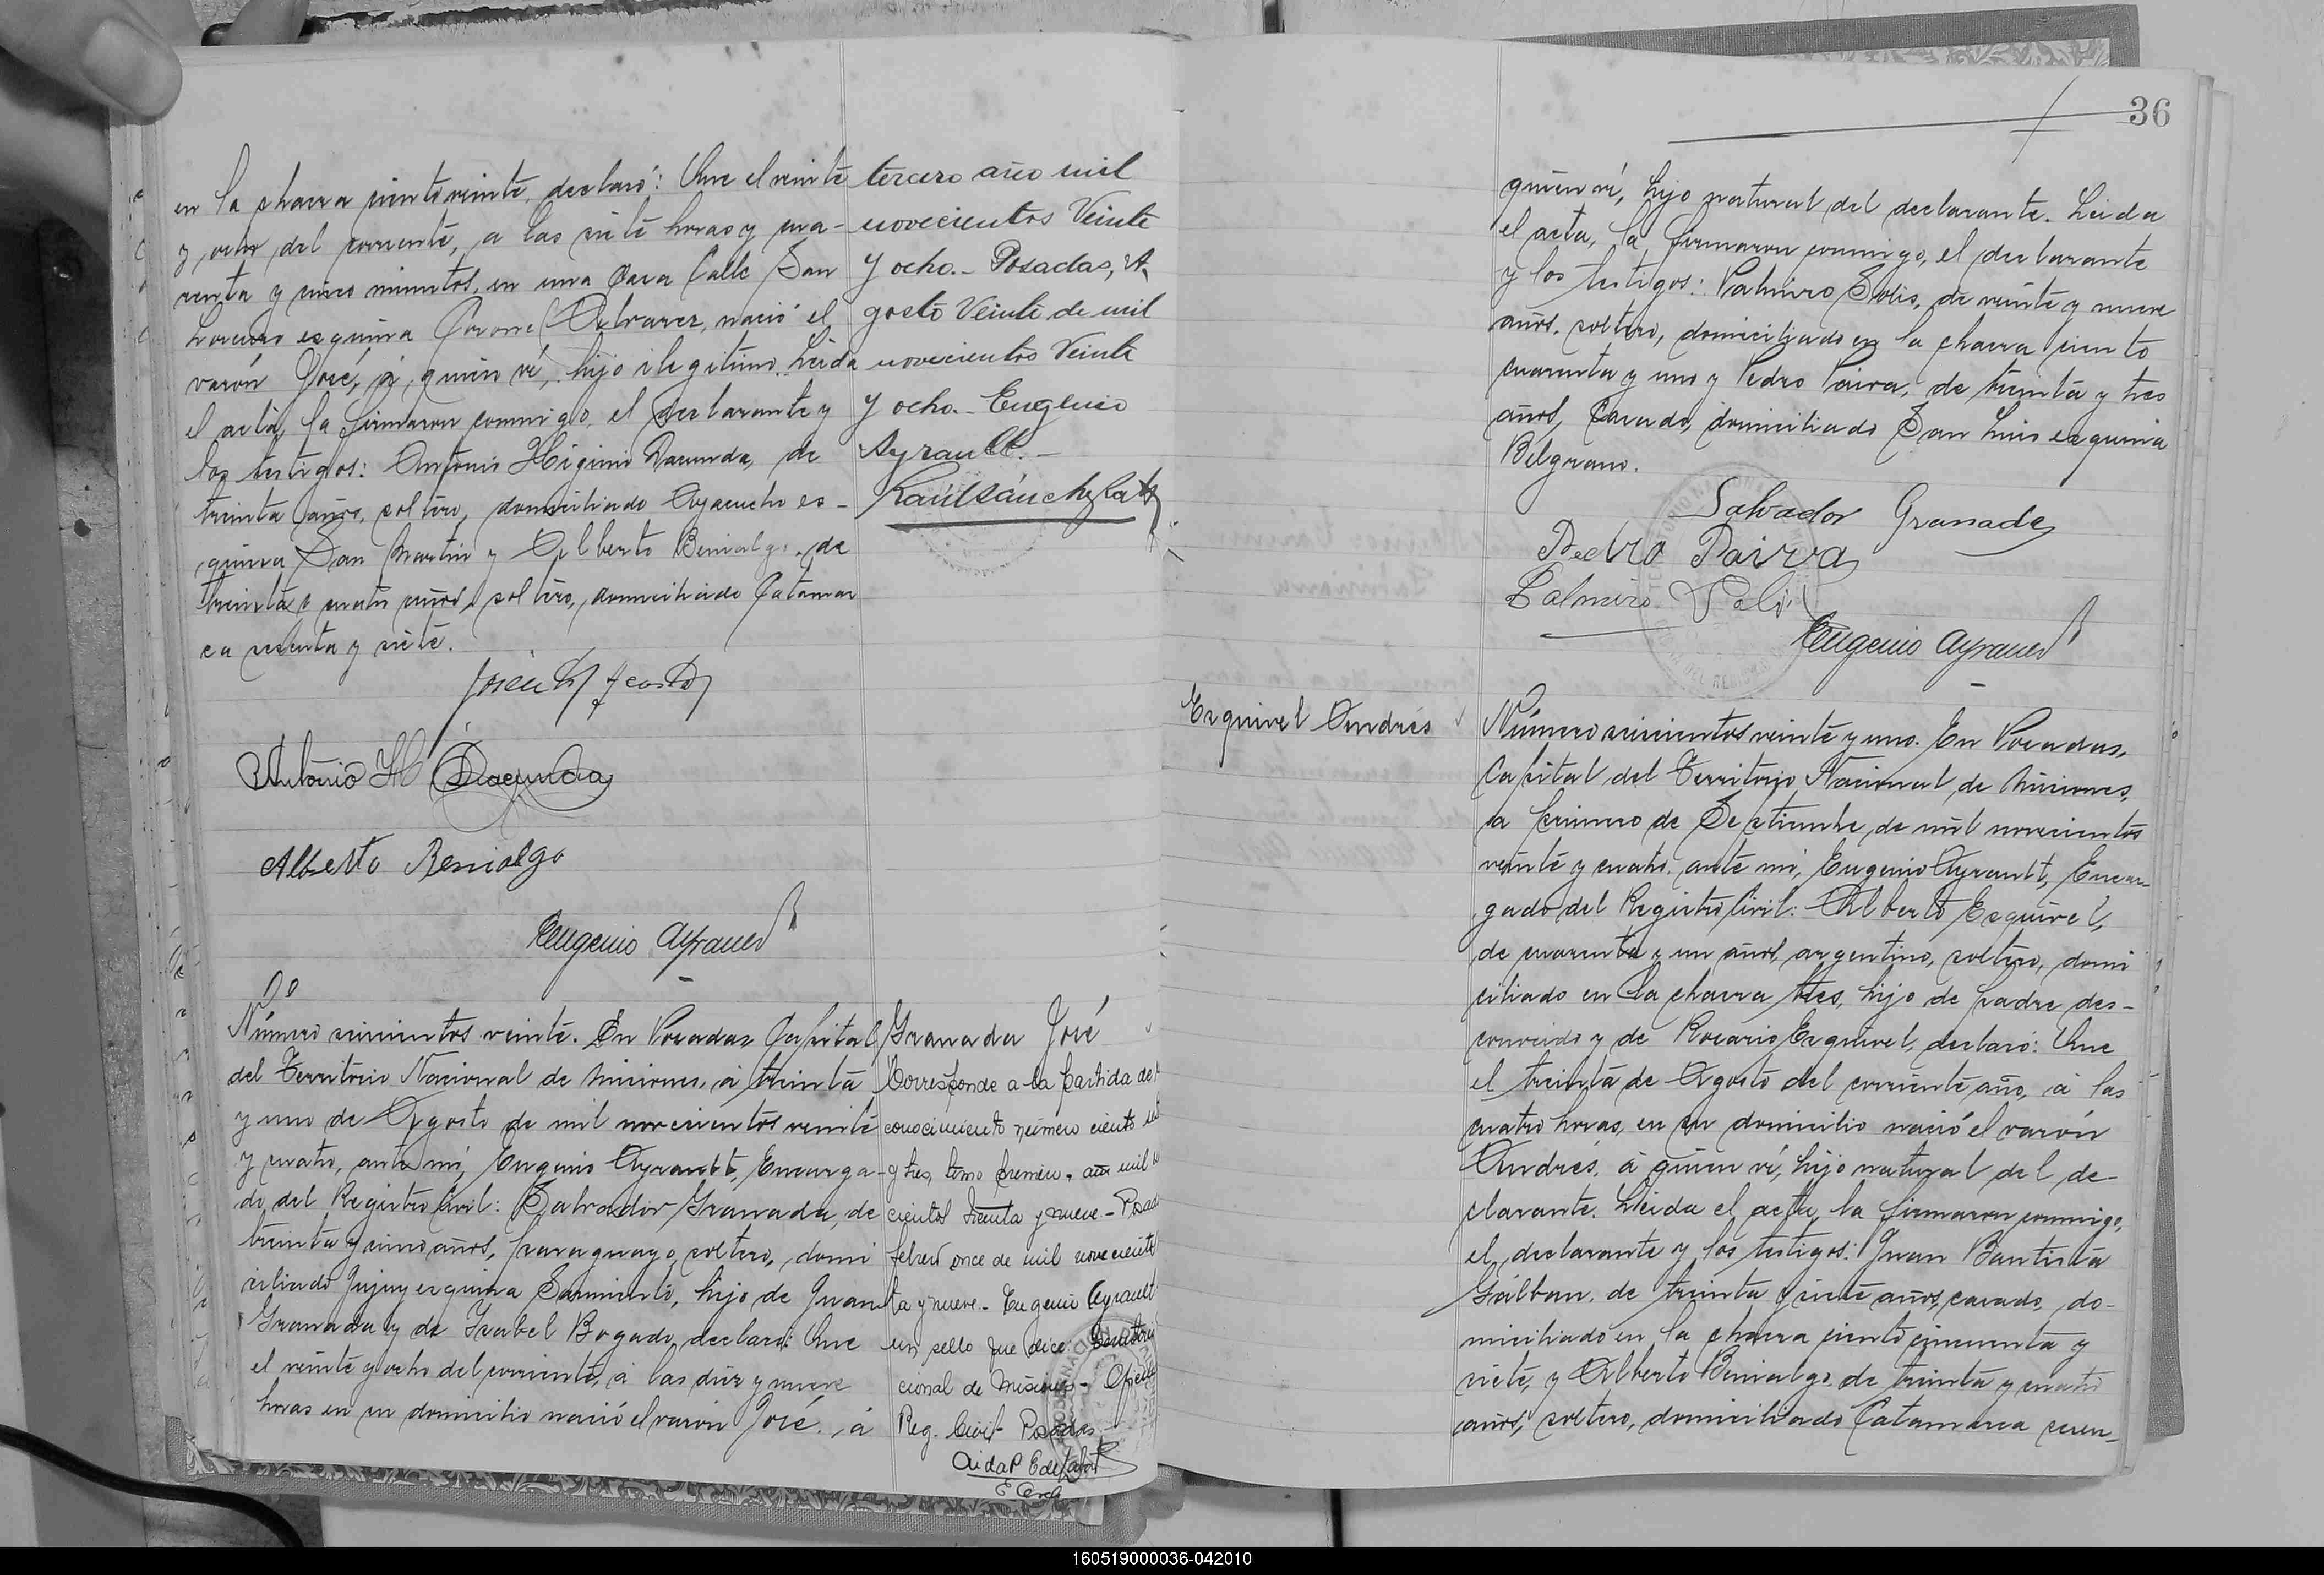 en la chacra ciento veinte, declaró: Que el veinte
y ocho del corriente, a las siete horas y cua-
renta y cinco minutos, en una casa Calle San
Lorenzo esquina Coronel Alvarez, nació el
varón José, á quien ví, hijo ilegítimo. Leida
el acta, la firmaron conmigo, el declarante y
los testigos: Antonio Higinio Dacunda, de
treinta años, soltero, domiciliado Ayacucho es-
quina San Martin y Alberto Benialgo, de
treinta y cuatro años, soltero, domiciliado Catamar
ca sesenta y siete.
Antonio H Dacunda
Alberto Benialgo
Eugenio Ayrault
tercero año mil
novecientos Veinte
y ocho.- Posadas, A-
gosto Veinte de mil
novecientos Veinte
y ocho.- Eugenio
Ayrault.-
Raúl Sánchez
Número seiscientos veinte. En Posadas Capital
del Territorio Nacional de Misiones, á treinta
y uno de Agosto de mil novecientos veinte
y cuatro, ante mí, Eugenio Ayrault, Encarga-
do del Registro Civil: Salvador Granada, de
treinta y cinco años, paraguayo, soltero, domi
ciliado Jujuy esquina Sarmiento, hijo de Juan
Granada y de Isabel Bogado, declaró: Que
el veinte y ocho del corriente, á las diez y nueve
horas en su domicilio nació el varón José, á
Granada José
Corresponde a la partida de
conocimiento número ciento
y tres, tomo primero, año mil
cientos treinta y nueve.-
febrero once de mil novecientos
ta y nueve.- Eugenio Ayrault
un sello que dice:
cional de Misiones - Oficina
Reg. Civil Posadas
36
quien ví, hijo natural del declarante. Leida
el acta, la firmaron conmigo, el declarante
y los testigos: Palmiro Solis, de veinte y nueve
años, soltero, domiciliado en la chacra ciento
cuarenta y uno y Pedro Paiva, de treinta y tres
años, casado, domiciliado San Luis esquina
Belgrano.
Salvador Granada
Pedro Paiva
Palmiro Solis
Eugenio Ayrault
Esquivel Andrés
Número seiscientos veinte y uno. En Posadas,
Capital del Territorio Nacional de Misiones,
a primero de Septiembre de mil novecientos
veinte y cuatro, ante mí, Eugenio Ayrault, Encar-
gado del Registro Civil: Alberto Esquivel,
de cuarenta y un años, argentino, soltero, domi
ciliado en la chacra tres, hijo de padre des-
conocido y de Rosario Esquivel, declaró: Que
el treinta de Agosto del corriente año, á las
cuatro horas, en su domicilio nació el varón
Andrés, á quien ví, hijo natural del de-
clarante. Leida el acta, la firmaron conmigo,
el declarante y los testigos: Juan Bautista
Galban, de treinta y siete años, casado, do-
miciliado en la chacra ciento cincuenta y
siete, y Alberto Benialgo, de treinta y cuatro
años, soltero, domiciliado Catamarca sesen-
160519000036-042010